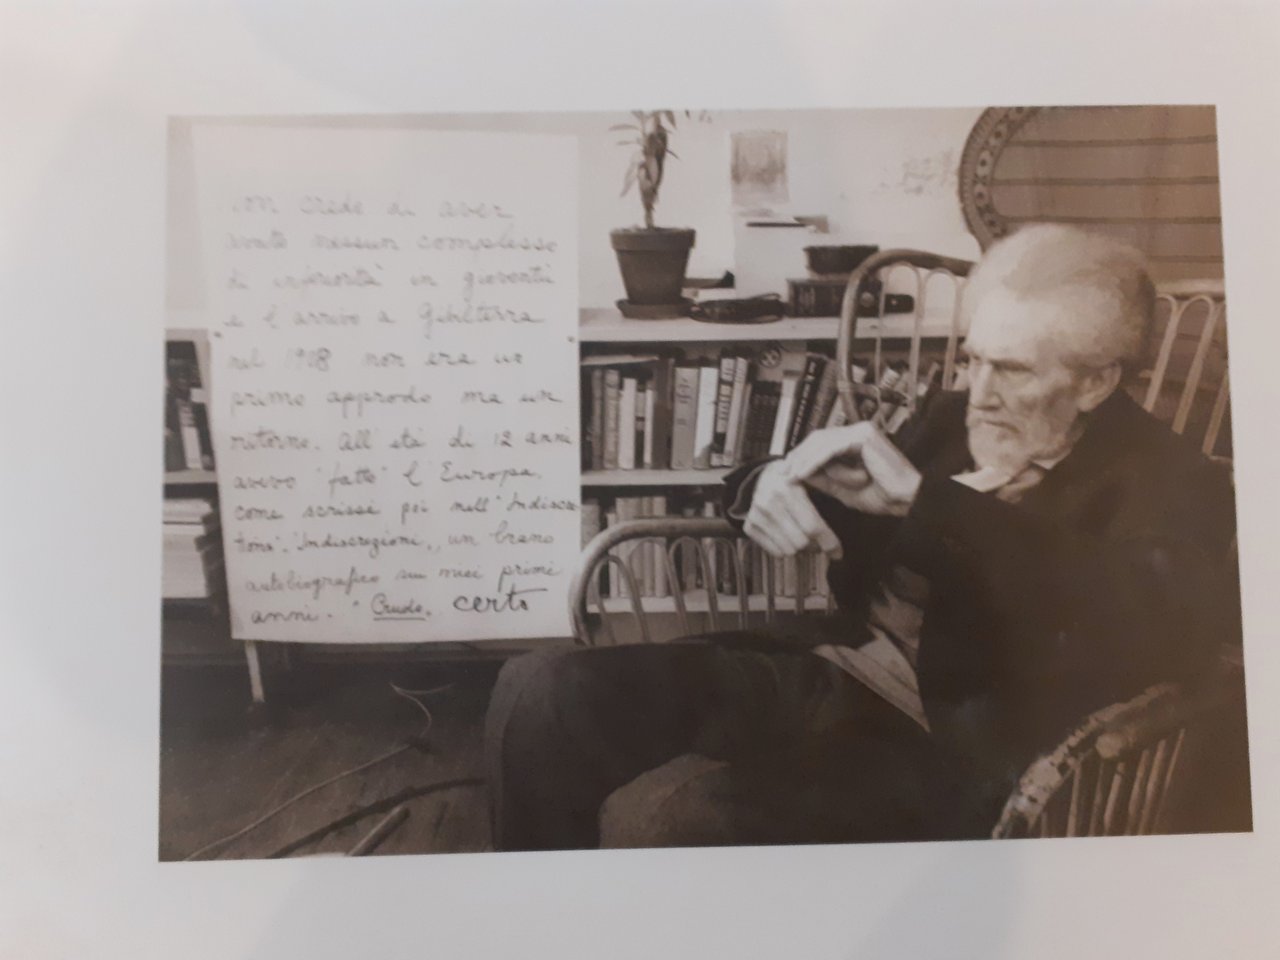 non credo di aver
avuto nessun complesso
di inferiorità in gioventù
e l'arrivo a Gibilterra
nel 1908 non era un
primo approdo ma un
ritorno. All'età di 12 anni
avevo "fatto" l'Europa.
come scrissi poi nell'"Indiscre-
tions". "Indiscrezioni", un brano
autobiografico sui miei primi
anni. " certo